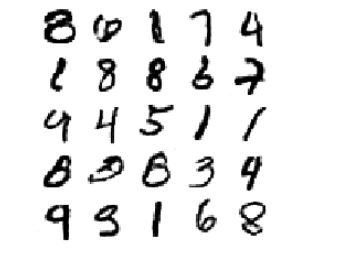 8 0 1 7 4
1 8 8 6 7
9 4 5 1 1
8 8 3 4
9 9 1 6 8